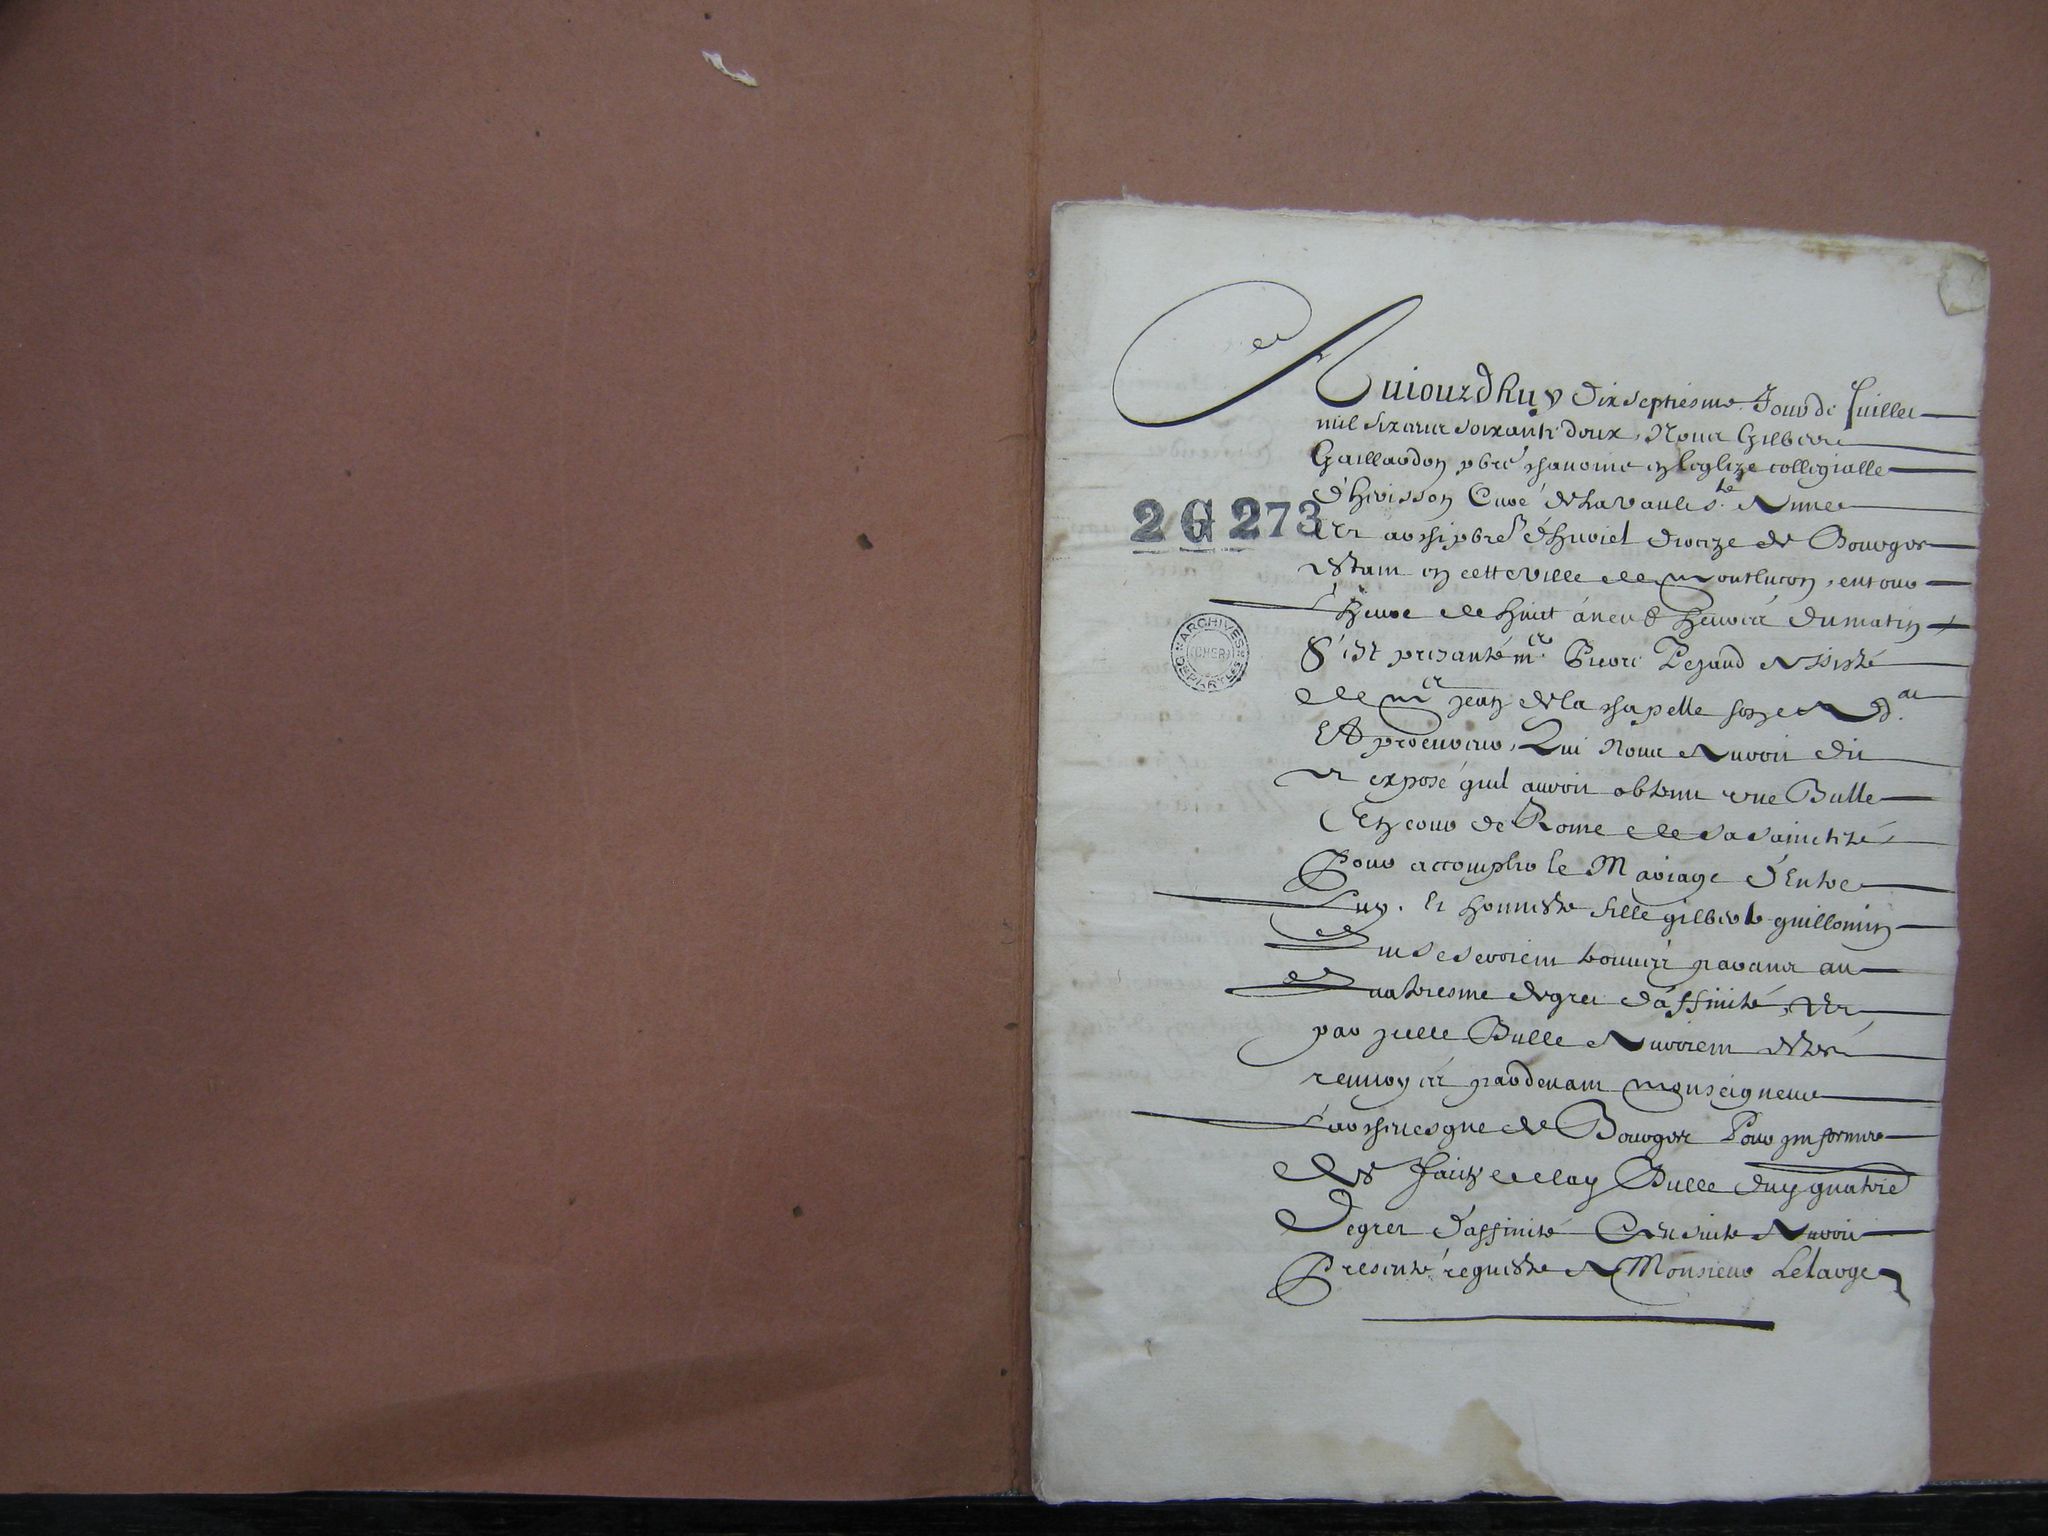 Auiourdhuy dixseptiesme Jour de Juillet
mil six cent soixante deux, Nous Gilbert
Gaillardon pbre chanoine en leglize collegialle
d'hérisson Curé de Lavault Ste Anne
2 G 273
Et archipbre d'huriel diocize de Bourges
estant en cette ville de montlucon, enuiron
L'heure de huict à neuf heures du matin
ARCHIVES DEPARTLES CHER
S'est presanté me Pierre Pegaud Assisté
de me jean de la chapelle son
Et procureur, Qui Nous Auroit dit
et exposé quil auroit obtenu vne Bulle
En cour de Rome de sa saincteté
Pour accomplir le Mariage d'Entre
Luy. et honneste fille gilberte guillomin
Qui se seroient trouués parants au
Quatriesme degret d'affinité, Et
par jcelle Bulle Auroient esté
renuoyés pardeuant monseigneur
L'archeuesque de Bourges Pour jnformer
des faicts de la Bulle du quatrie
Degret d'affinité Ensuite Auroit
Presenté requeste A Monsieur Lelarge